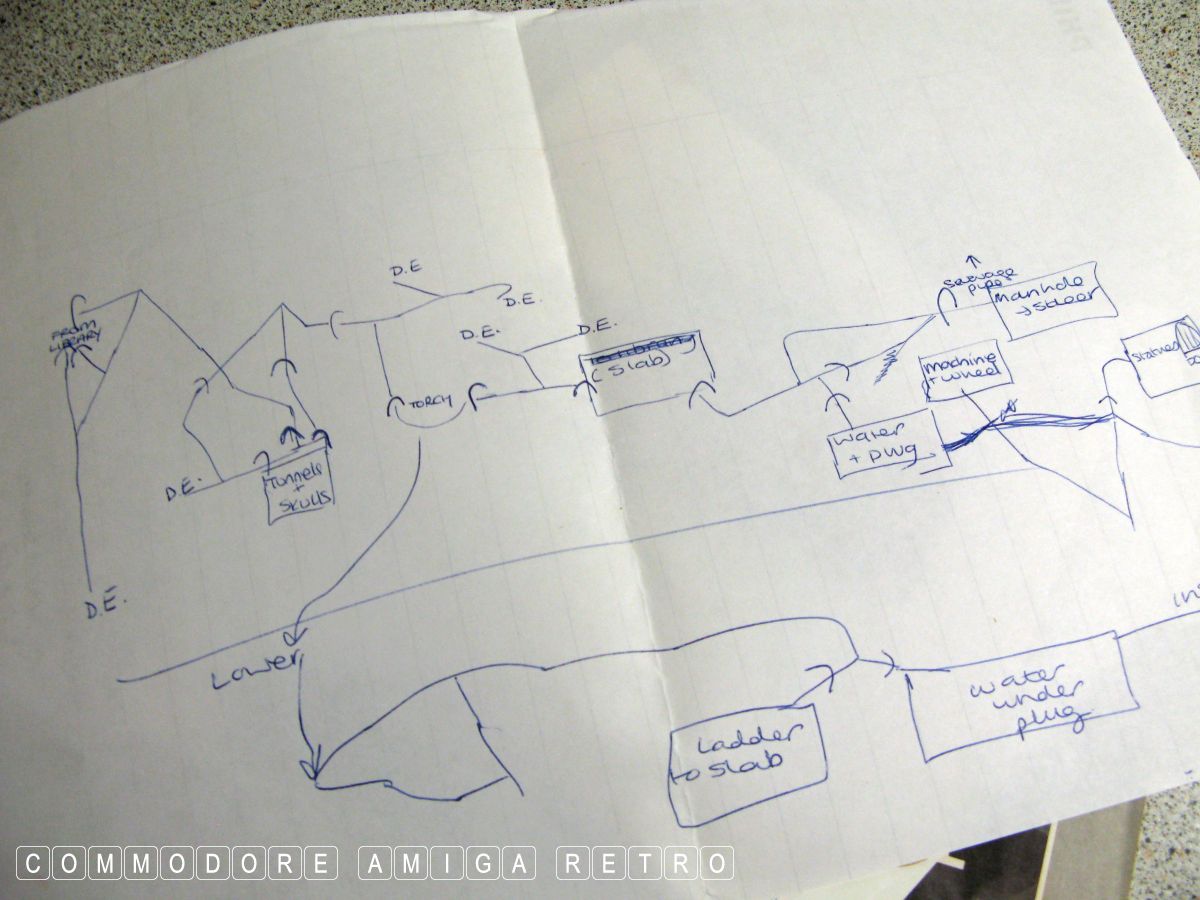 D.E
D.E.
FROM
LIBRARY
D.E.
D.E.
TORCH
(Slab)
Sewage
pipe
Manhole
machine
+ wheel
Statues
water
+ plug
D.E.
Tunnels
+
SKULLS
D.E.
Lower
Ladder
to slab
water
under
plug
COMMODORE AMIGA RETRO